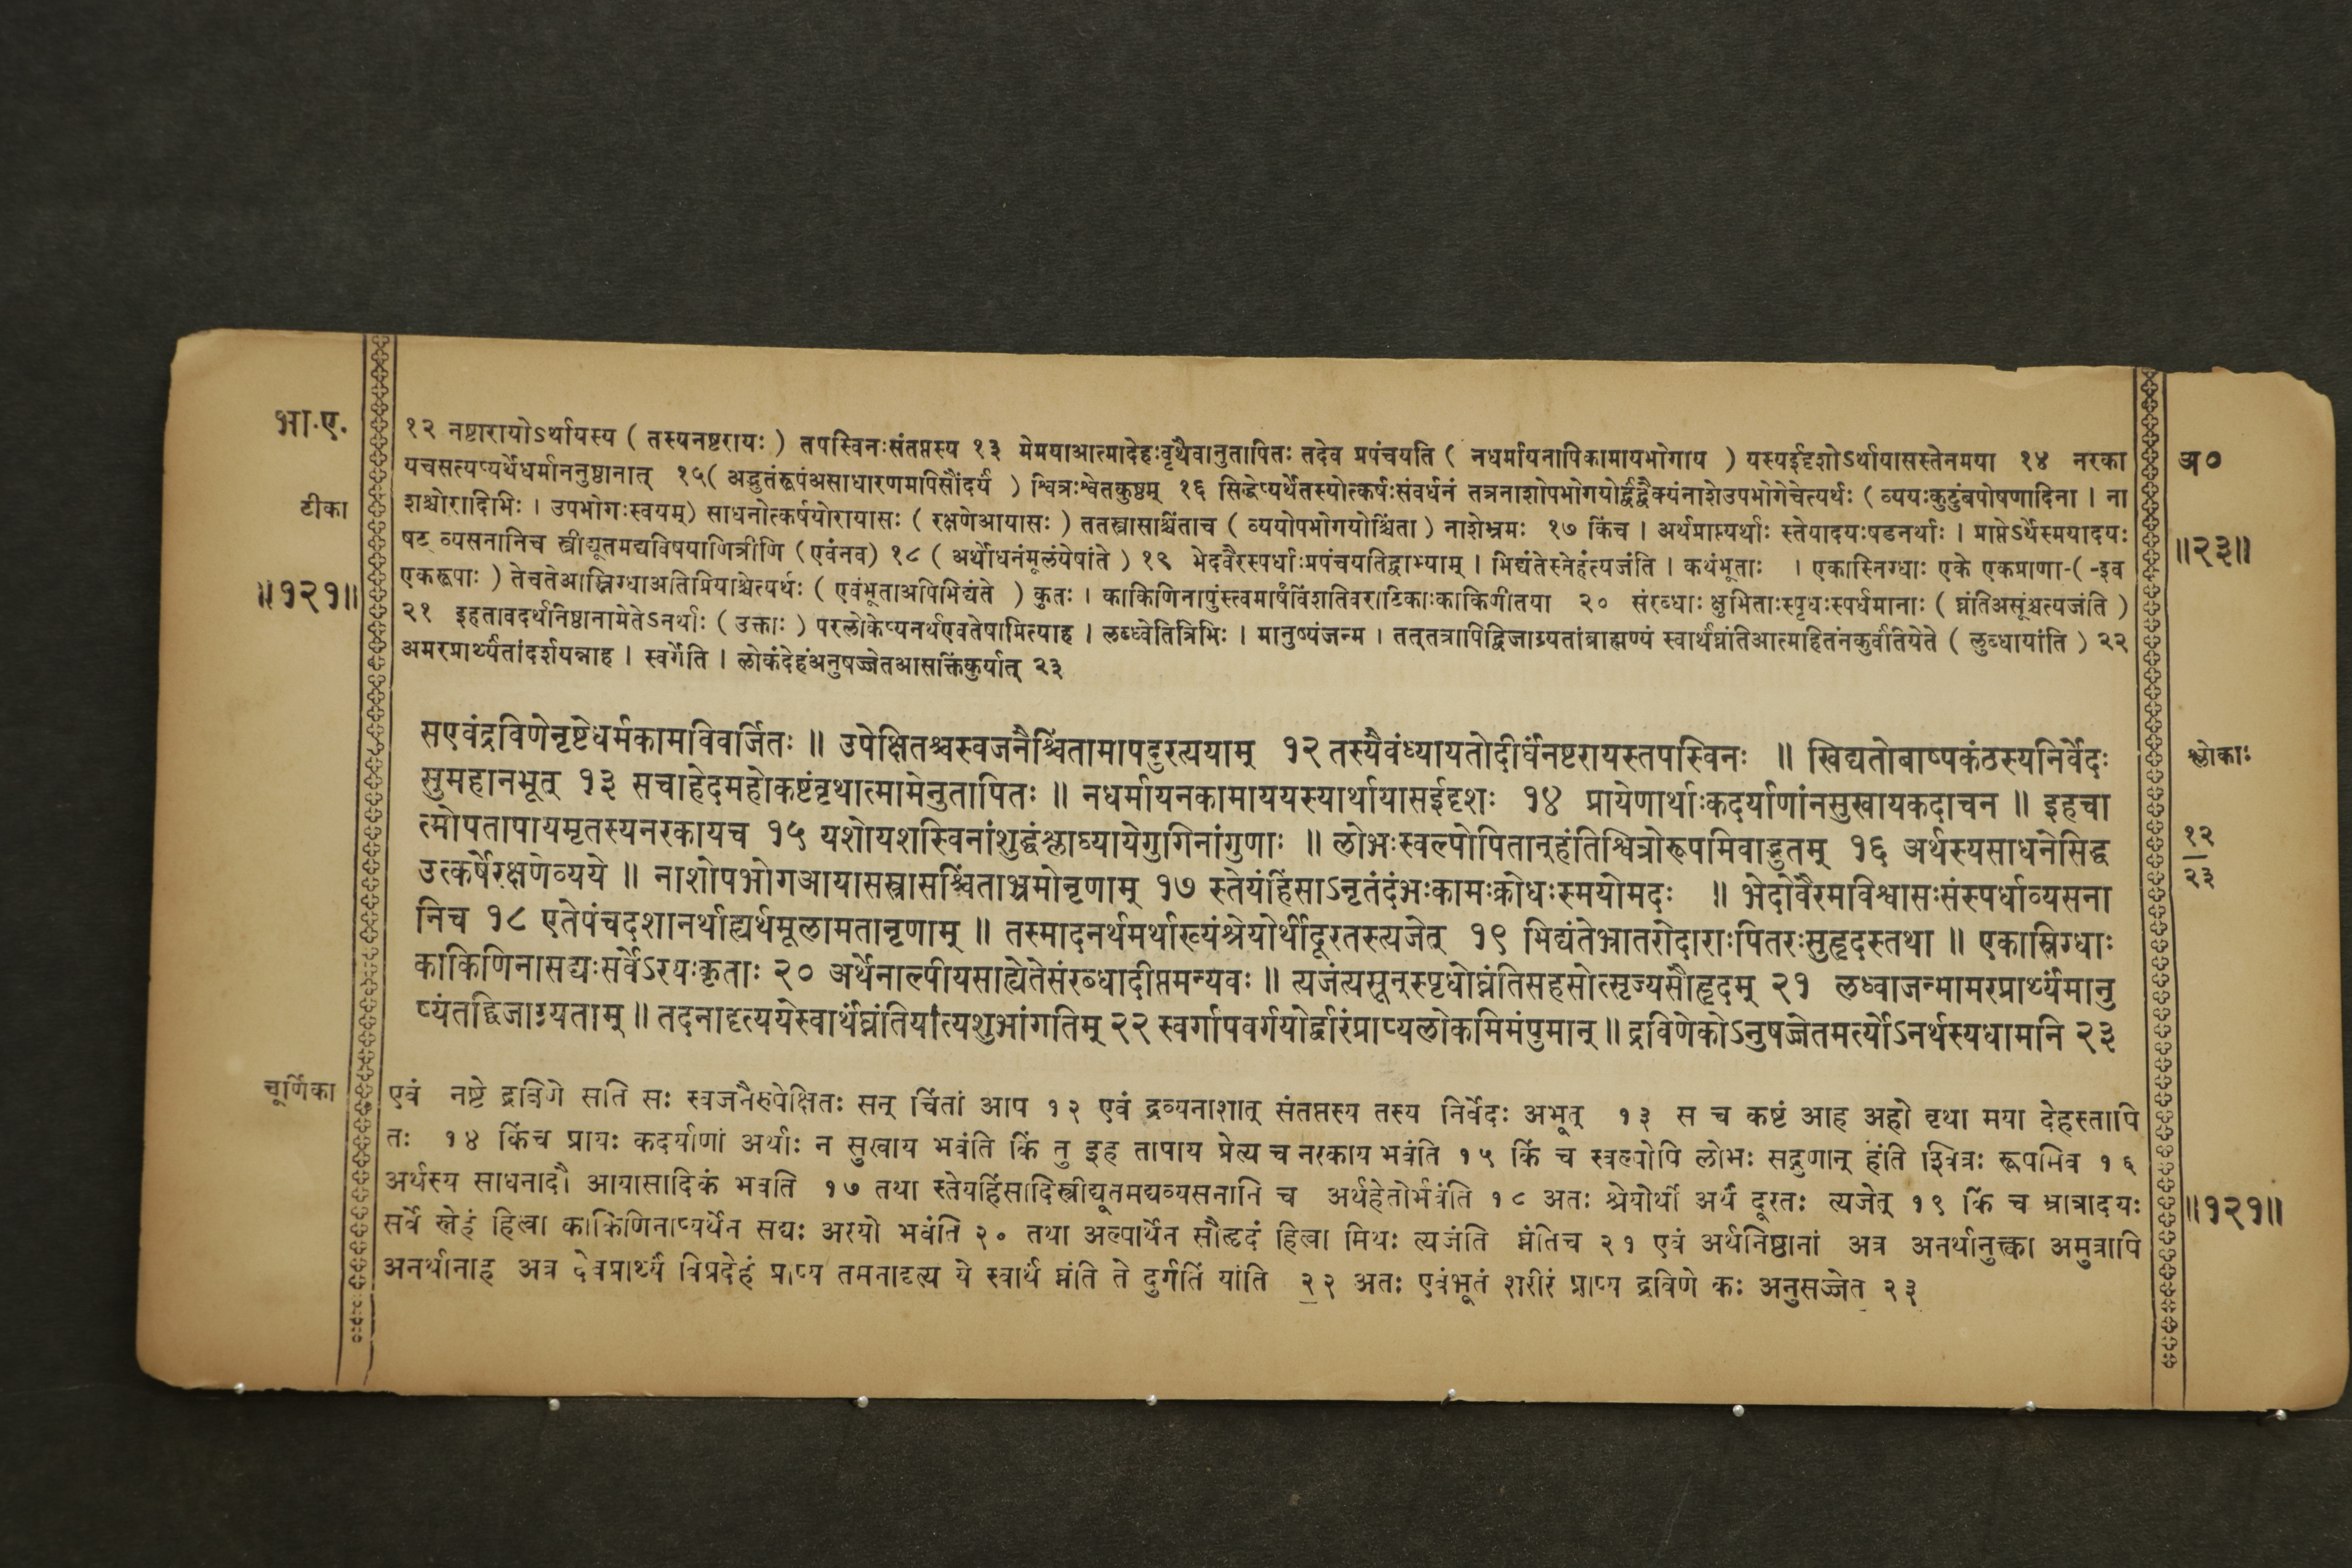 भा.ए.
अ०
टीका
॥२३॥
॥१२१॥
१२ नष्टारायोऽर्थायस्य ( तस्यनष्टरायः ) तपस्विनःसंतप्तस्य १३ मेमयाआत्मादेहःवृथैवानुतापितः तदेव प्रपंचयति ( नधर्मायनापिकामायभोगाय ) यस्यईदृशोऽर्थायासस्तेनमया १४ नरका
यचसत्यप्यर्थेधर्माननुष्ठानात् १५( अद्भुतंरूपंअसाधारणमपिसौंदर्यं ) श्वित्रःश्वेतकुष्ठम् १६ सिद्धेप्यर्थेतस्योत्कर्षःसंवर्धनं तत्रनाशोपभोगयोर्द्वंद्वैक्यंनाशेउपभोगेचेत्यर्थः ( व्ययःकुटुंबपोषणादिना । ना
शश्चोरादिभिः । उपभोगःस्वयम्) साधनोत्कर्षयोरायासः ( रक्षणेआयासः ) ततस्त्रासाश्चिंताच ( व्ययोपभोगयोश्चिंता ) नाशेभ्रमः १७ किंच । अर्थप्राप्त्यर्थाः स्तेयादयःषडनर्थाः । प्राप्तेऽर्थेस्मयादयः
षट् व्यसनानिच स्त्रीद्यूतमद्यविषयाणित्रीणि (एवंनव) १८ ( अर्थोधनंमूलंयेषांते ) १९ भेदवैरस्पर्धाःप्रपंचयतिद्वाभ्याम् । भिद्यंतेस्नेहंत्यजंति । कथंभूताः । एकास्निग्धाः एके एकप्राणा-( -इव
एकरूपाः ) तेचतेआस्निग्धाअतिप्रियाश्चेत्यर्थः ( एवंभूताअपिभिद्यंते ) कुतः । काकिणिनापुंस्त्वमार्षंविंशतिवराटिकाःकाकिणीतया २० संरब्धाः क्षुभिताःस्पृधःस्पर्धमानाः ( घ्नंतिअसूंश्चत्यजंति )
२१ इहतावदर्थनिष्ठानामेतेऽनर्थाः ( उक्ताः ) परलोकेप्यनर्थएवतेषामित्याह । लब्ध्वेतित्रिभिः । मानुष्यंजन्म । तत्तत्रापिद्विजाग्र्यतांब्राह्मण्यं स्वार्थंघ्नंतिआत्महितंनकुर्वंतियेते ( लुब्धायांति ) २२
अमरप्रार्थ्यतांदर्शयन्नाह । स्वर्गेति । लोकंदेहंअनुषज्जेतआसक्तिंकुर्यात् २३
श्लोकाः
१२
२३
सएवंद्रविणेनष्टेधर्मकामविवर्जितः ॥ उपेक्षितश्चस्वजनैश्चिंतामापदुरत्ययाम् १२ तस्यैवंध्यायतोदीर्घंनष्टरायस्तपस्विनः ॥ खिद्यतोबाष्पकंठस्यनिर्वेदः
सुमहानभूत् १३ सचाहेदमहोकष्टंवृथात्मामेनुतापितः ॥ नधर्मायनकामाययस्यार्थायासईदृशः १४ प्रायेणार्थाःकदर्याणांनसुखायकदाचन ॥ इहचा
त्मोपतापायमृतस्यनरकायच १५ यशोयशस्विनांशुद्धंश्लाघ्यायेगुणिनांगुणाः ॥ लोभःस्वल्पोपितान्हंतिश्वित्रोरूपमिवाद्भुतम् १६ अर्थस्यसाधनेसिद्ध
उत्कर्षेरक्षणेव्यये ॥ नाशोपभोगआयासस्त्रासश्चिंताभ्रमोनृणाम् १७ स्तेयंहिंसाऽनृतंदंभःकामःक्रोधःस्मयोमदः ॥ भेदोवैरमविश्वासःसंस्पर्धाव्यसना
निच १८ एतेपंचदशानर्थाह्यर्थमूलामतानृणाम् ॥ तस्मादनर्थमर्थाख्यंश्रेयोर्थीदूरतस्त्यजेत् १९ भिद्यंतेभ्रातरोदाराःपितरःसुहृदस्तथा ॥ एकास्निग्धाः
काकिणिनासद्यःसर्वेऽरयःकृताः २० अर्थेनाल्पीयसाह्येतेसंरब्धादीप्तमन्यवः ॥ त्यजंत्यसून्स्पृधोघ्नंतिसहसोत्सृज्यसौहृदम् २१ लब्ध्वाजन्मामरप्रार्थ्यंमानु
ष्यंतद्द्विजाग्र्यताम् ॥ तदनादृत्ययेस्वार्थंघ्नंतियांत्यशुभांगतिम् २२ स्वर्गापवर्गयोर्द्वारंप्राप्यलोकमिमंपुमान् ॥ द्रविणेकोऽनुषज्जेतमर्त्योऽनर्थस्यधामनि २३
चूर्णिका
एवं नष्टे द्रविणे सति सः स्वजनैरुपेक्षितः सन् चिंतां आप १२ एवं द्रव्यनाशात् संतप्तस्य तस्य निर्वेदः अभूत् १३ स च कष्टं आह अहो वृथा मया देहस्तापि
तः १४ किंच प्रायः कदर्याणां अर्थाः न सुखाय भवंति किं तु इह तापाय प्रेत्य च नरकाय भवंति १५ किं च स्वल्पोपि लोभः सद्गुणान् हंति श्वित्रः रूपमिव १६
अर्थस्य साधनादौ आयासादिकं भवति १७ तथा स्तेयहिंसादिस्त्रीद्यूतमद्यव्यसनानि च अर्थहेतोर्भवंति १८ अतः श्रेयोर्थी अर्थं दूरतः त्यजेत् १९ किं च भ्रात्रादयः
सर्वे स्नेहं हित्वा काकिणिनाप्यर्थेन सद्यः अरयो भवंति २० तथा अल्पार्थेन सौहृदं हित्वा मिथः त्यजंति घ्नंतिच २१ एवं अर्थनिष्ठानां अत्र अनर्थानुक्त्वा अमुत्रापि
अनर्थानाह अत्र देवप्रार्थ्यं विप्रदेहं प्राप्य तमनादृत्य ये स्वार्थं घ्नंति ते दुर्गतिं यांति २२ अतः एवंभूतं शरीरं प्राप्य द्रविणे कः अनुसज्जेत २३
॥१२१॥